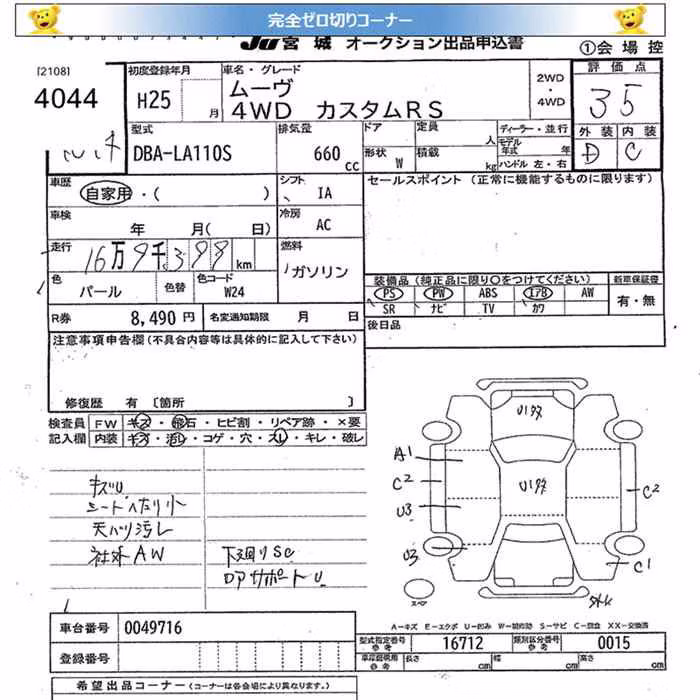 完全ゼロ切りコーナー
JU宮城 オークション出品申込書
①会場控
[2108]
4044
初度登録年月
H25
月
車名・グレード
ムーヴ
4WD カスタムRS
2WD
・
4WD
評価点
3.5
外装 内装
D C
型式
DBA-LA110S
排気量
660
cc
ドア
形状
W
定員
人
積載
kg
ディーラー・並行
モデル年式 年
ハンドル 左・右
車歴
自家用・( )
シフト
IA
セールスポイント (正常に機能するものに限ります)
車検
年 月( 日)
冷房
AC
走行
16万9千398 km
燃料
ガソリン
色
パール
色替
色コード
W24
装備品(純正品に限り〇をつけてください)
新車保証書
PS PW ABS エアB AW
有・無
SR ナビ TV カワ
R券
8,490円
名変通知期限 月 日
後日品
注意事項申告欄(不具合内容等は具体的に記入して下さい)
修復歴 有〔箇所 〕
検査員
記入欄
FW キズ・飛石・ヒビ割・リペア跡・×要
内装 キズ・汚レ・コゲ・穴・スレ・キレ・破レ
キズU
シートヘたり小
天バリ汚レ
社外AW
下廻りSC
ロアサポートU
U1タタ
A1
C2
U3
U1タタ
C2
U3
C1
スペア
A-キズ E-エクボ U-凹み W-補修跡 S-サビ C-腐食 XX-交換済
車台番号 0049716
登録番号
型式指定番号 参考 16712
類別区分番号 参考 0015
車庫証明用 参考 長さ cm 幅 cm 高さ cm
希望出品コーナー(コーナーは各会場により異なります。)